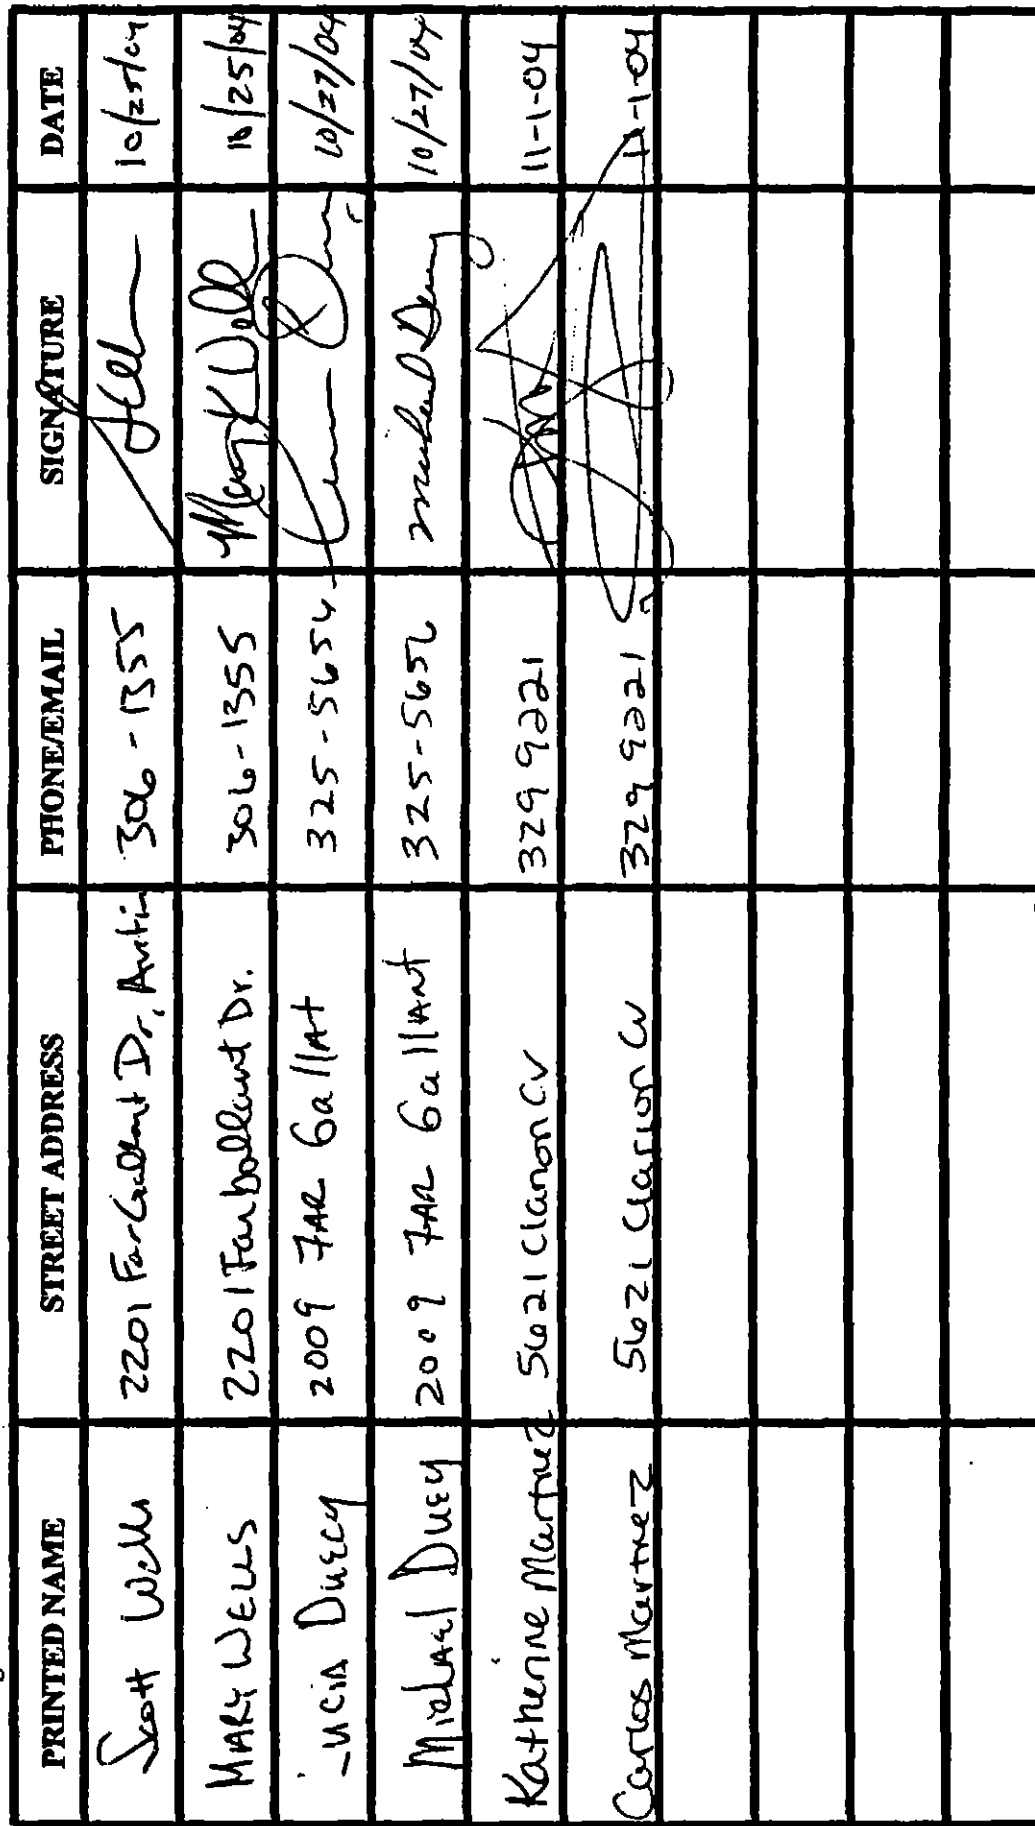 PRINTED NAME STREET ADDRESS PHONE/EMAIL SIGNATURE DATE
Scott Wells 2201 Far Gallant Dr, Austin 306-1355 10/25/04
MARY WELLS 2201 Far Gallant Dr. 306-1355 Mary K Wells 10/25/04
2009 FAR Gallant 325-5656 10/27/04
Michael Duecy 2009 FAR GallAnt 325-5656 10/27/04
Katherine Martinez 5621 Clarion Cv 329 9221 11-1-04
Carlos Martinez 5621 Clarion Cv 329 9221 11-1-04